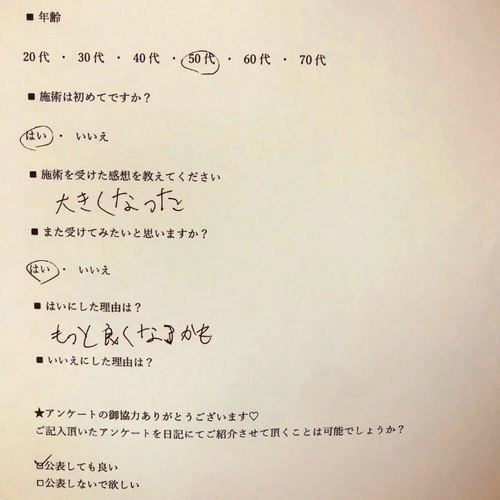 ■ 年齢
20代 ・ 30代 ・ 40代 ・ 50代 ・ 60代 ・ 70代
■ 施術は初めてですか？
はい ・ いいえ
■ 施術を受けた感想を教えてください
大きくなったと
■ また受けてみたいと思いますか？
はい ・ いいえ
■ はいにした理由は？
もっと良くなるかも
■ いいえにした理由は？
★アンケートの御協力ありがとうございます♡
ご記入頂いたアンケートを日記にてご紹介させて頂くことは可能でしょうか？
☑公表しても良い
□公表しないで欲しい